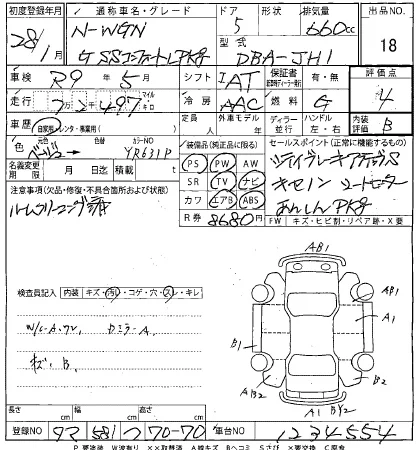 初度登録年月 通称車名・グレード ドア 形状 排気量 出品NO
28/1 N-WGN 5 660cc 18
G SSコンフォートLPKg 型式 DBA-JH1
車検 R9年5月 シフト IAT 保証書 有・無 評価点
走行 マイル キロ 冷房 AAC 燃料 G 4
車歴 自家用・レンタ・事業用( ) 定員 人 外車モデル 年 ディーラー 並行 ハンドル 左・右 内装評価 B
色 元色 ベージュ 替 カラーNO YR631P
装備品(純正品に限る) セールスポイント(正常に機能するもの)
名義変更期限 月 日 積載 PS PW AW
注意事項(欠品・修復・不具合箇所および状態) SR TV ナビ キセノン シートヒーター
ルームクリーニング済 カワ エアB ABS あんしんPKg
R券 8680円 FW キズ・ヒビ割・リペア跡・X要
検査員記入 内装 キズ・汚レ・コゲ・穴・スレ・キレ
AB1
A1
B1
A1
B2
AB2
A1 BY2
キズ、B
長さ cm 幅 cm 高さ cm
登録NO 70-70 車台NO 1234554
P要塗装 W波有り XX取替済 A線キズ Bヘコミ Sさび X要交換 C腐食